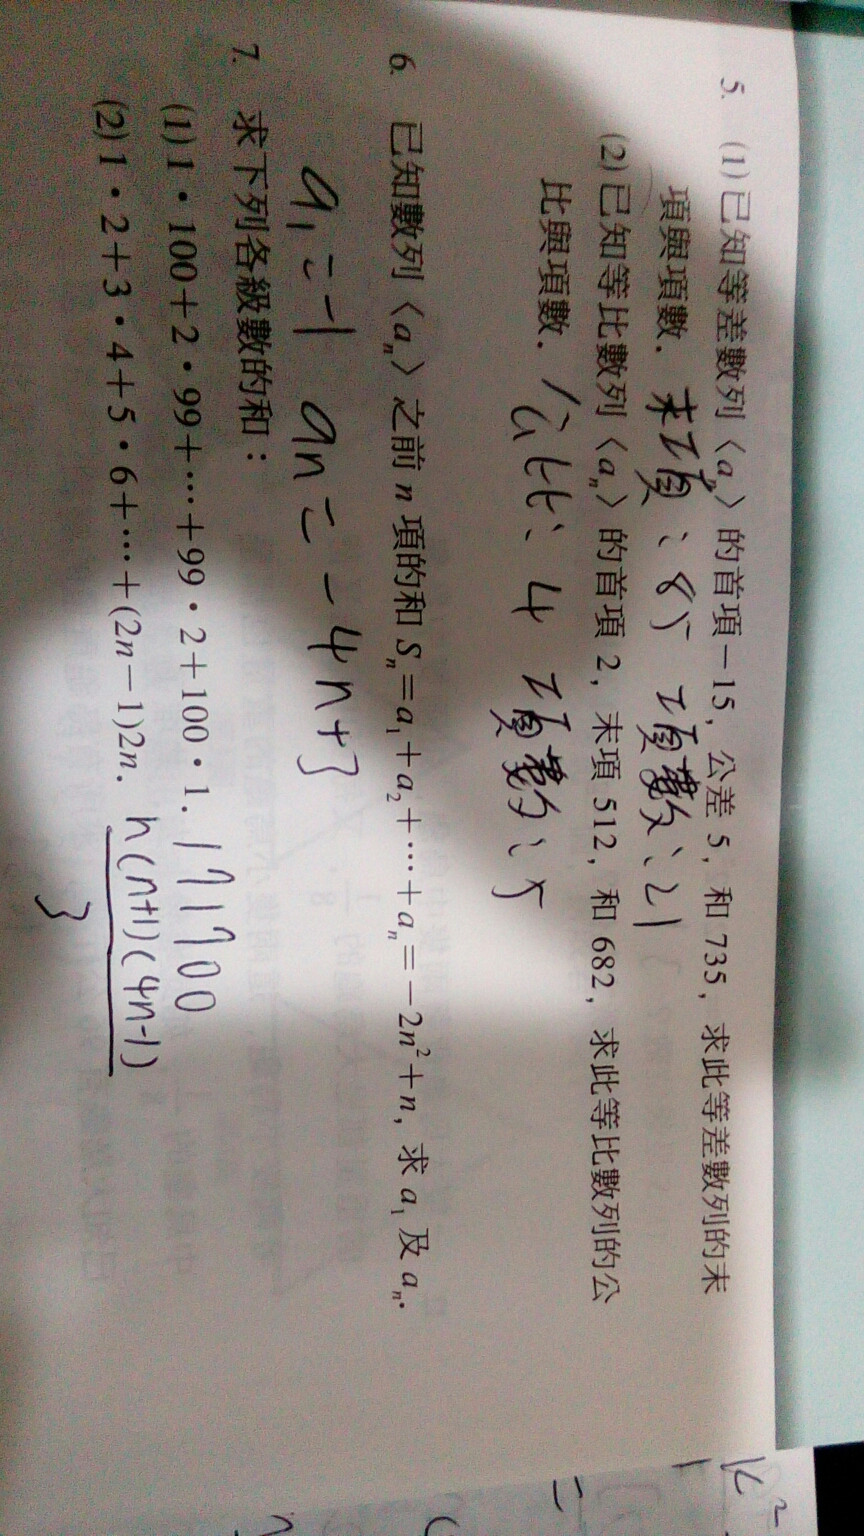 5. (1)已知等差數列〈aₙ〉的首項-15，公差5，和735，求此等差數列的末
項與項數． 末項：85 項數：21
(2)已知等比數列〈aₙ〉的首項2，末項512，和682，求此等比數列的公
比與項數． 公比：4 項數：5
6. 已知數列〈aₙ〉之前n項的和Sₙ=a₁+a₂+⋯+aₙ=-2n²+n，求a₁及aₙ．
a₁=-1 aₙ=-4n+3
7. 求下列各級數的和：
(1)1·100+2·99+⋯+99·2+100·1． 171700
(2)1·2+3·4+5·6+⋯+(2n-1)2n． n(n+1)(4n-1)
3
k²